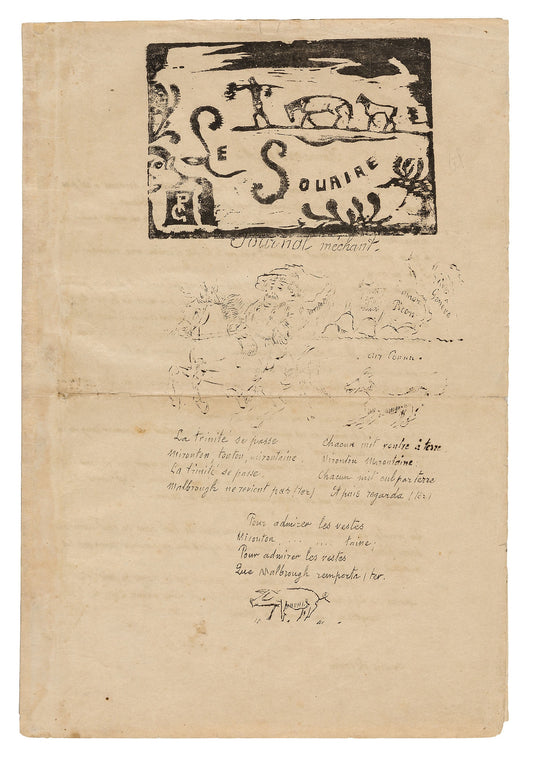 LE
SOURIRE
PG
Journal méchant.
Picon
La trinité se passe
Mironton, tonton, mirontaine.
La trinité se passe.
Malbrough ne revient pas (ter)
Chacun mit ventre à terre
Mironton Mirontaine;
Chacun mit cul par terre
Et puis regarda (ter)
Pour admirer les vestes
Mironton, ... ... taine;
Pour admirer les vestes
Que Malbrough remporta (ter.